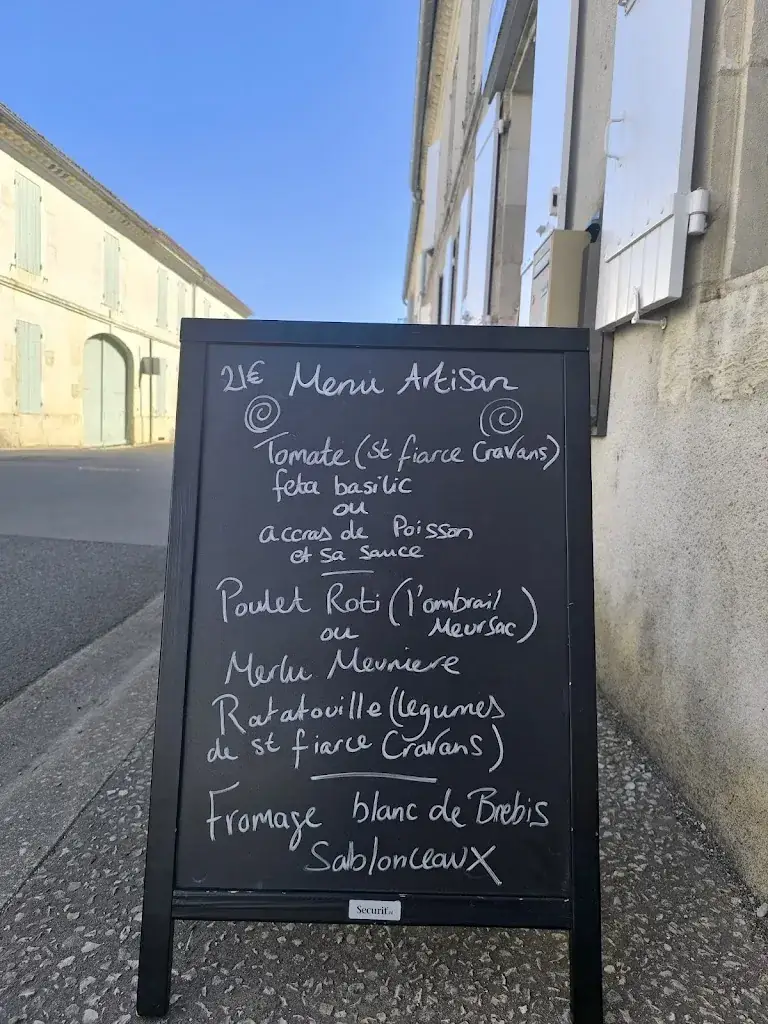 21€ Menu Artisan
Tomate (St fiarce Cravans)
feta basilic
ou
accras de Poisson
et sa sauce
Poulet Roti (l'ombrail
ou Meursac)
Merlu Meuniere
Ratatouille (légumes
de st fiarce Cravans)
Fromage blanc de Brebis
Sablonceaux
Securit